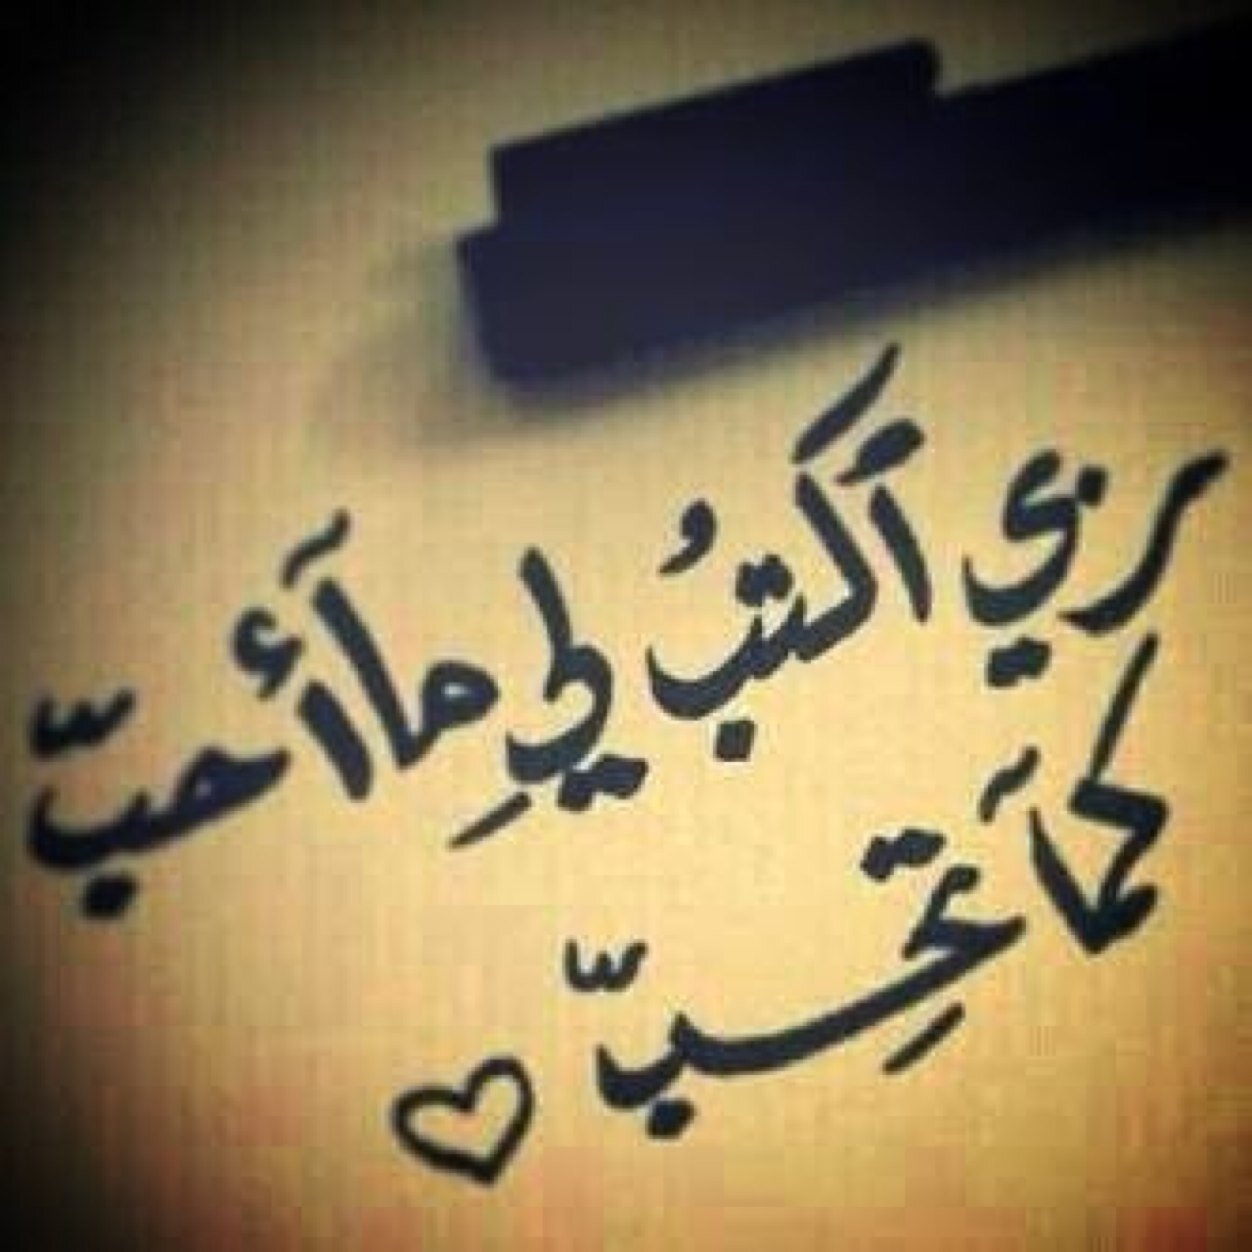 ربي أكتبُ لي ما أحبّ
كما تحِبّ